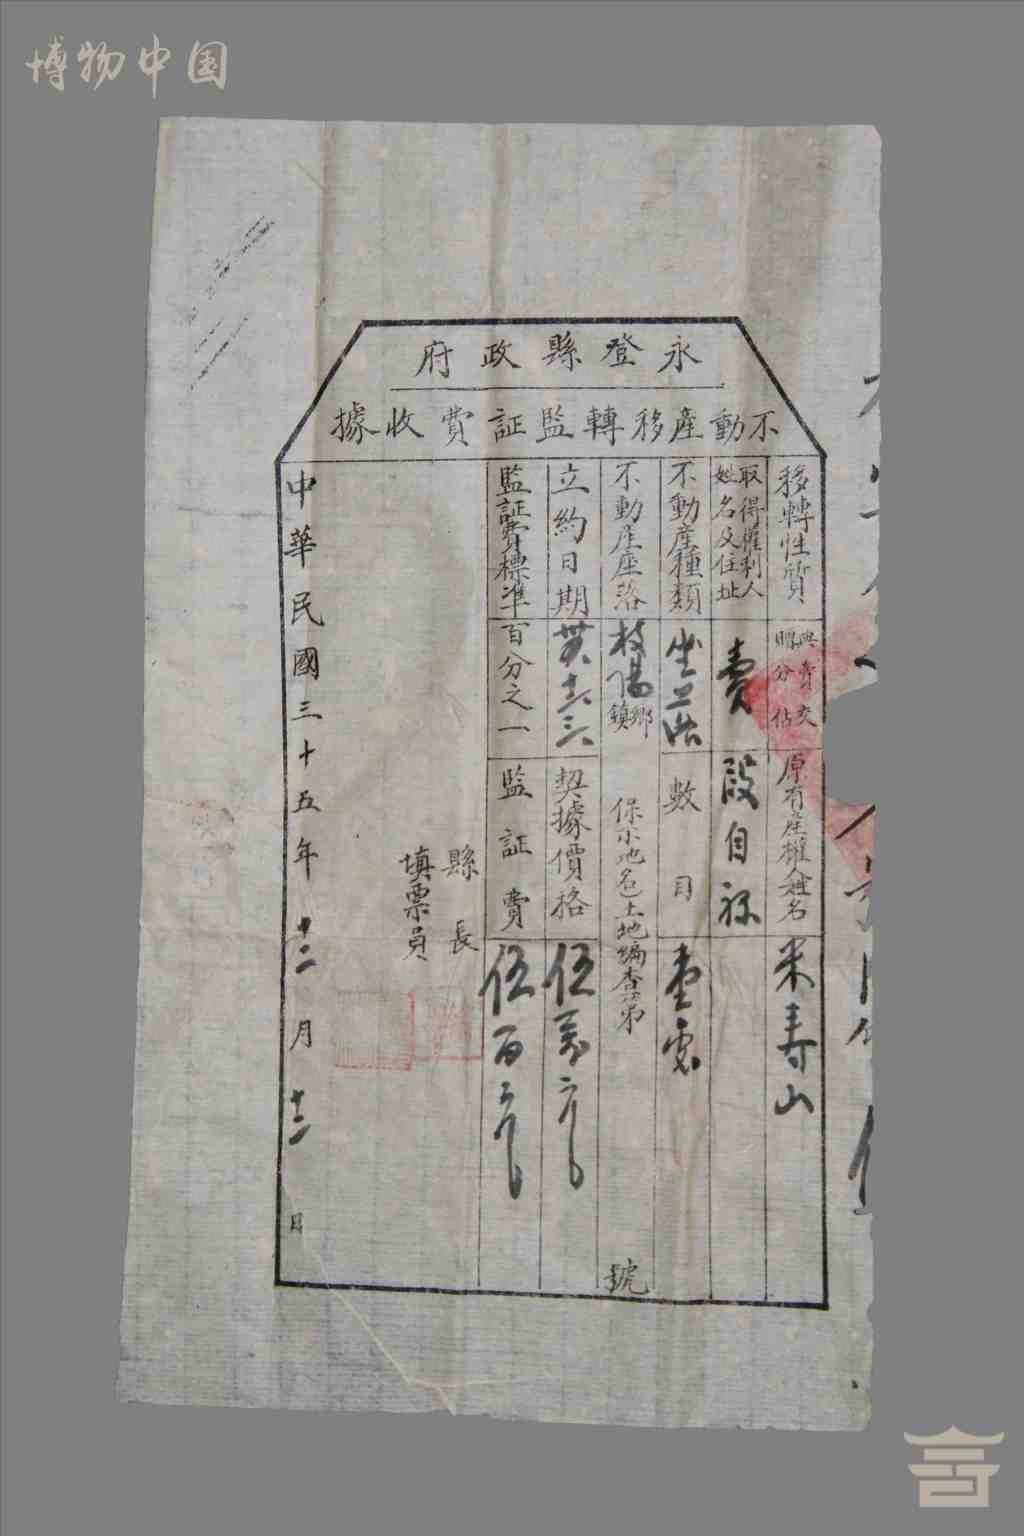 博物中国
永登縣政府
不動産移轉監証費收據
移轉性質
典賣交
贈分佔
原有産權人姓名
米寿山
取得權利人
姓名及住址
賣
段自祿
不動産種類
坐落
數目
壹處
不動产座落
枝陽
鄉
鎮
保小地名土地編查第
號
立約日期
契據價格
伍萬元
監証費標准
百分之一
監証費
伍百元
縣長
填票員
中華民國三十五年十二月十二日